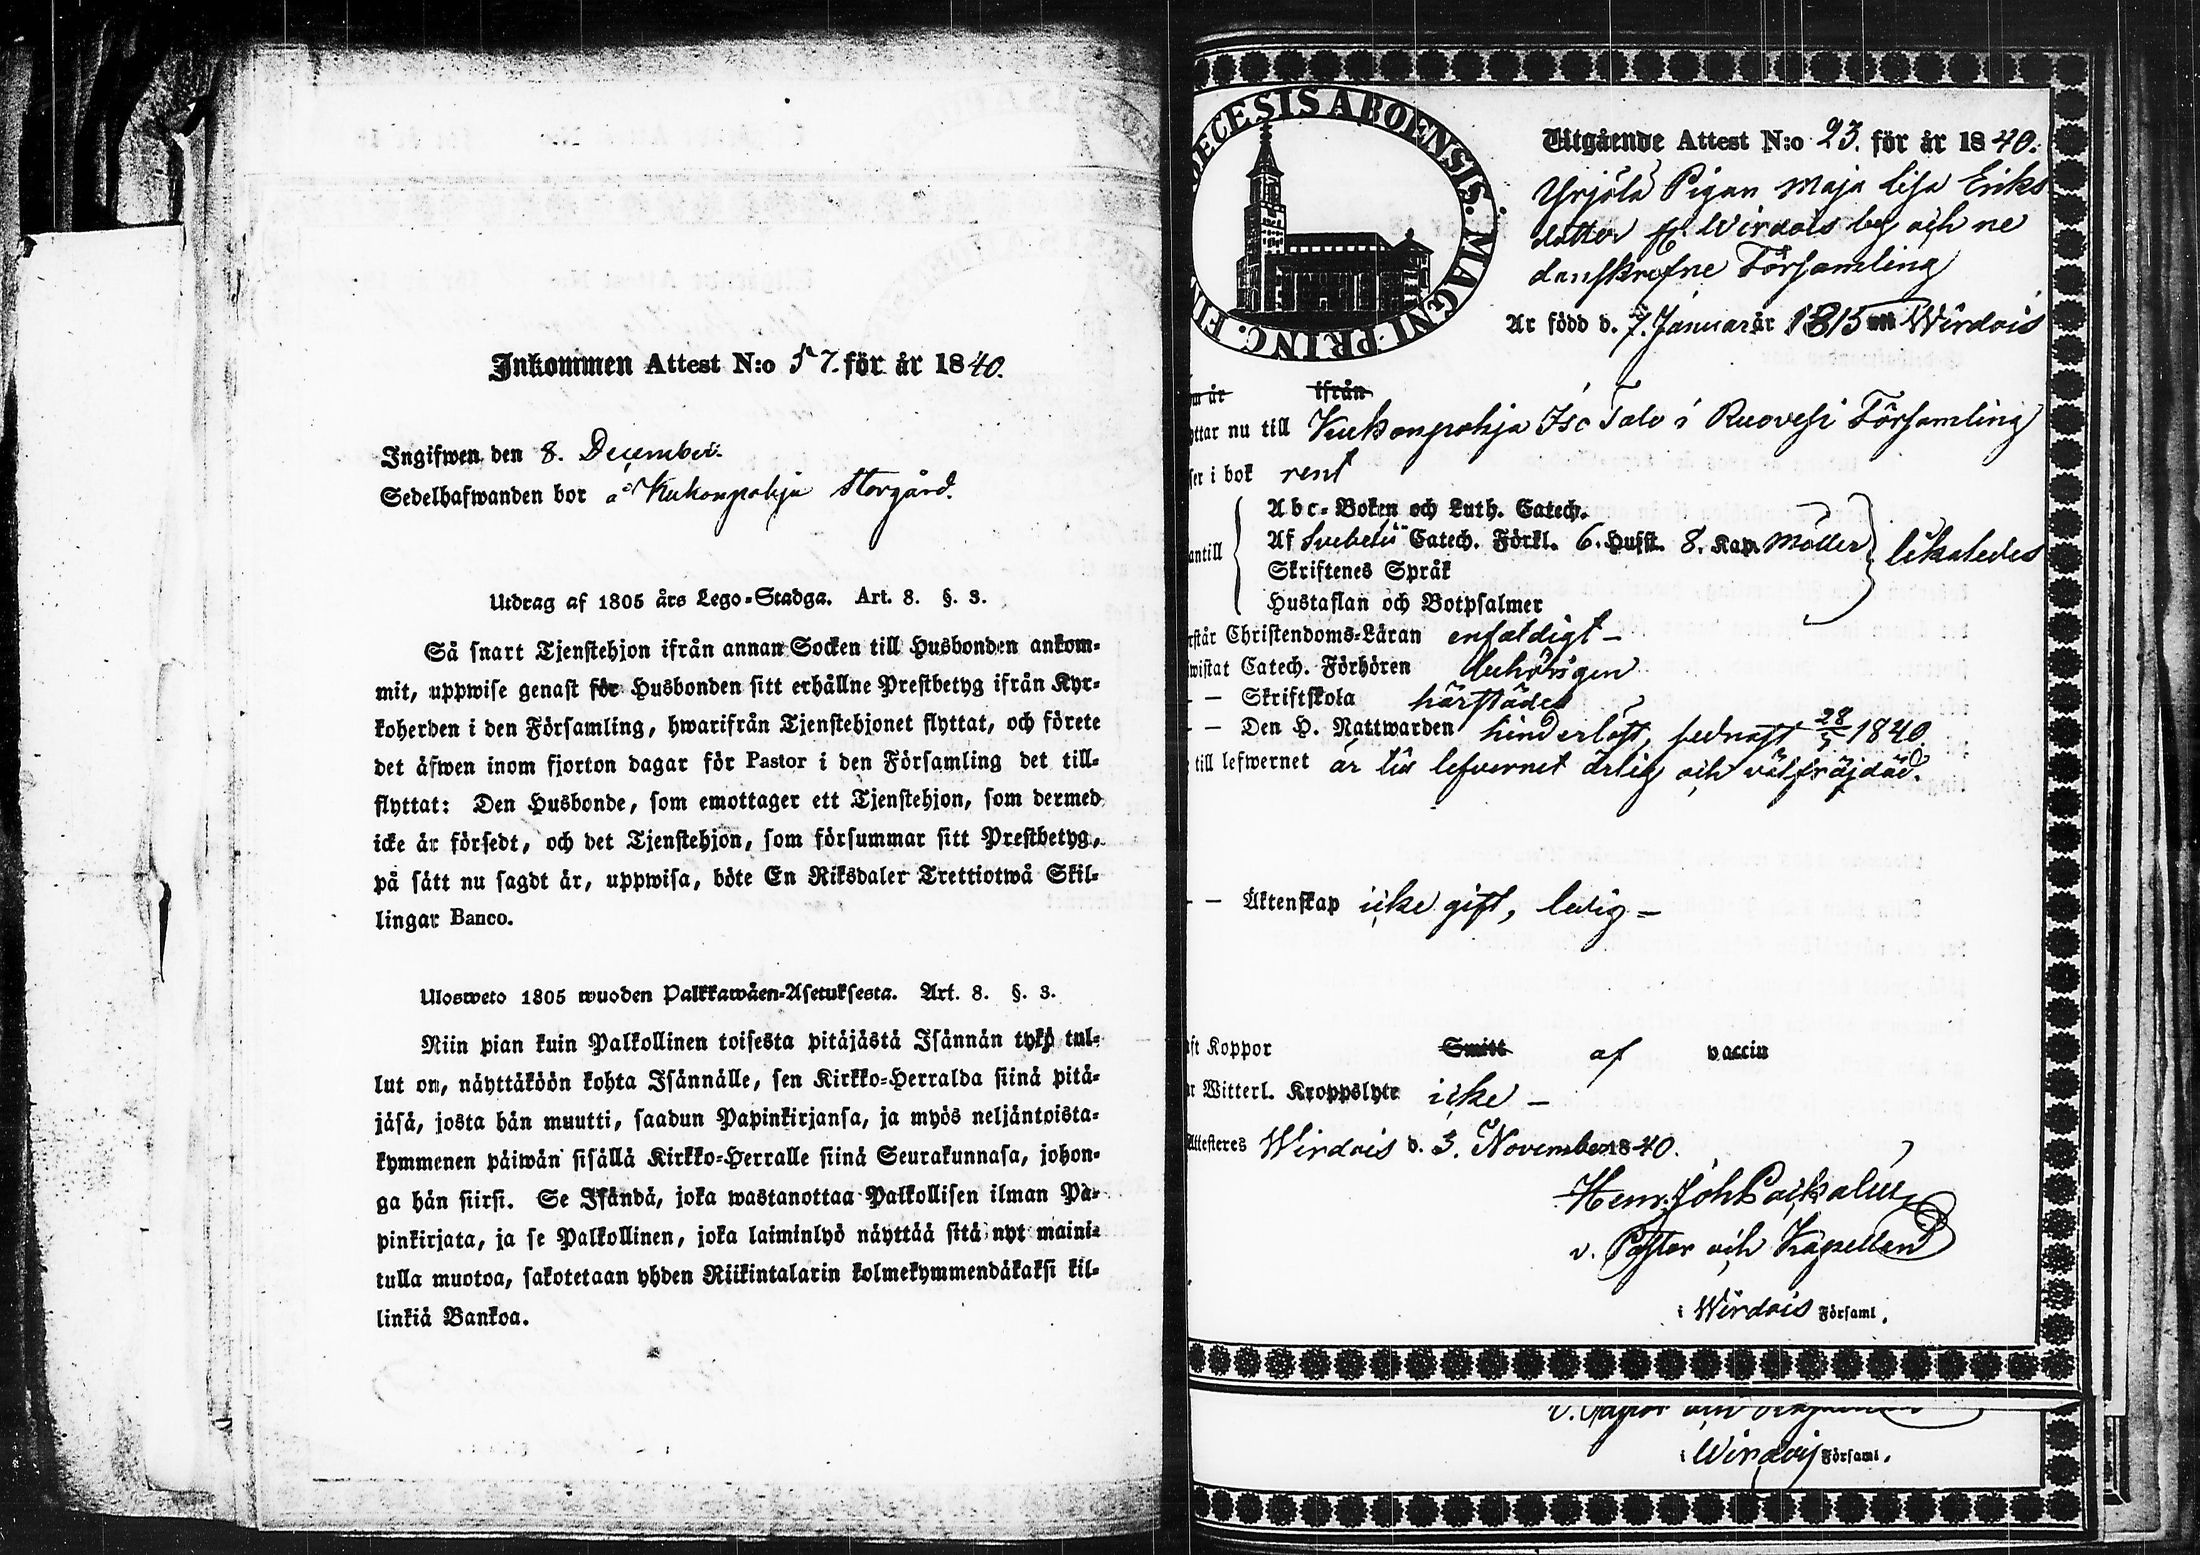 Inkommen Attest N:o 57. för år 1840.
Ingifwen den 8. December.
Sedelhafwanden bor å Kukonpohja Storgård.
Utdrag af 1805 års Lego-Stadga. Art. 8. §. 3.
Så snart Tjenstehjon ifrån annan Socken till Husbonden ankom-
mit, uppwise genast för Husbonden sitt erhållne Prestbetyg ifrån Kyr-
koherden i den Församling, hwarifrån Tjenstehjonet flyttat, och förete
det äfwen inom fjorton dagar för Pastor i den Församling det till-
flyttat: Den Husbonde, som emottager ett Tjenstehjon, som dermed
icke är försedt, och det Tjenstehjon, som försummar sitt Prestbetyg,
på sätt nu sagdt är, uppwisa, böte En Riksdaler Trettiotwå Skil-
lingar Banco.
Ulosweto 1805 wuoden Palkkawäen-Asetuksesta. Art. 8. §. 3.
Niin pian kuin Palkollinen toisesta pitäjästä Isännän tykö tul-
lut on, näyttäköön kohta Isännälle, sen Kirkko-Herralda siinä pitä-
jäsä, josta hän muutti, saadun Papinkirjansa, ja myös neljäntoista-
kymmenen päiwän sisällä Kirkko-Herralle siinä Seurakunnasa, johon-
ga hän siirsi. Se Isändä, joka wastanottaa Palkollisen ilman Pa-
pinkirjata, ja se Palkollinen, joka laiminlyö näyttää sitä nyt maini-
tulla muotoa, sakotetaan yhden Riikintalarin kolmekymmendäkaksi kil-
linkiä Bankoa.
DIOECESIS ABOENSIS. MAGNI PRINC. FIN
Utgående Attest N:o 23. för år 1840.
Yrjölä Pigan Maja Lisa Eriks
dotter fr. Wirdois beg och ne
danskrefne Församling
Är född d. 7. Januar år 1815 uti Wirdois
m år ifrån
yttar nu till Kukonpohja Iso Talo i Ruovesi Församling
ser i bok rent
antill
Abc-Boken och Luth. Catech.
Af Svebelii Catech. Förkl. 6. Hufst. 8. Kap. Möller
Skriftenes Språk
Hustaflan och Botpsalmer
likaledes
rstår Christendoms-Läran enfaldigt –
wistat Catech. Förhören behörigen
– – Skriftskola härstädes
– – Den H. Nattwarden hinderlöst, sednast 28/5 1840.
till lefwernet är till lefvernet ärlig och välfräjdad.
– – Äktenskap icke gift, ledig –
ft Koppor Smitt af vaccin
r Witterl. Kroppslyte icke –
Attesteres Wirdois d. 3. November 1840.
Henr. Joh Paikalin
v. Pastor och Kapellan
i Wirdois Församl.
v. Pastor och Kapellan
i Wirdois Församl.